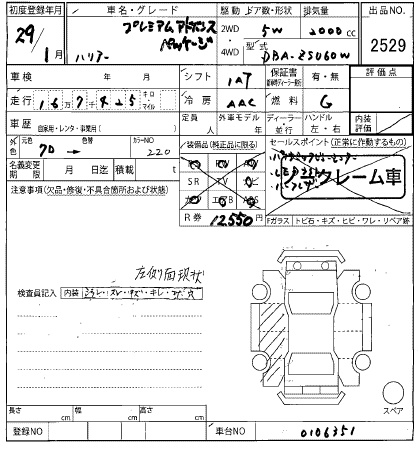 初度登録年月 車名・グレード 駆動 ドア数・形状 排気量 出品NO
29年 1月 ハリアー プレミアムアドバンスパッケージ 2WD・4WD 5W 2000cc 2529
型式 DBA-ZSU60W
車検 年 月 シフト IAT 保証書 有・無 評価点
走行 16万7千425 キロ マイル 冷房 AAC 燃料 G
車歴 自家用・レンタ・事業用( ) 定員 人 外車モデル 年 ディーラー・並行 ハンドル 左・右 内装評価
外色 元色 クロ→ 色替 カラーNO 220
装備品(純正品に限る) セールスポイント(正常に作動するもの)
名義変更期限 月 日迄 積載 t
SR TV
ノークレーム車
注意事項(欠品・修復・不具合箇所および状態)
R券 12,550
Fガラス トビ石・キズ・ヒビ・ワレ・リペア跡
左側面現状
検査員記入 内装
スペア
長さ cm 幅 cm 高さ cm
登録NO 車台NO 0106351